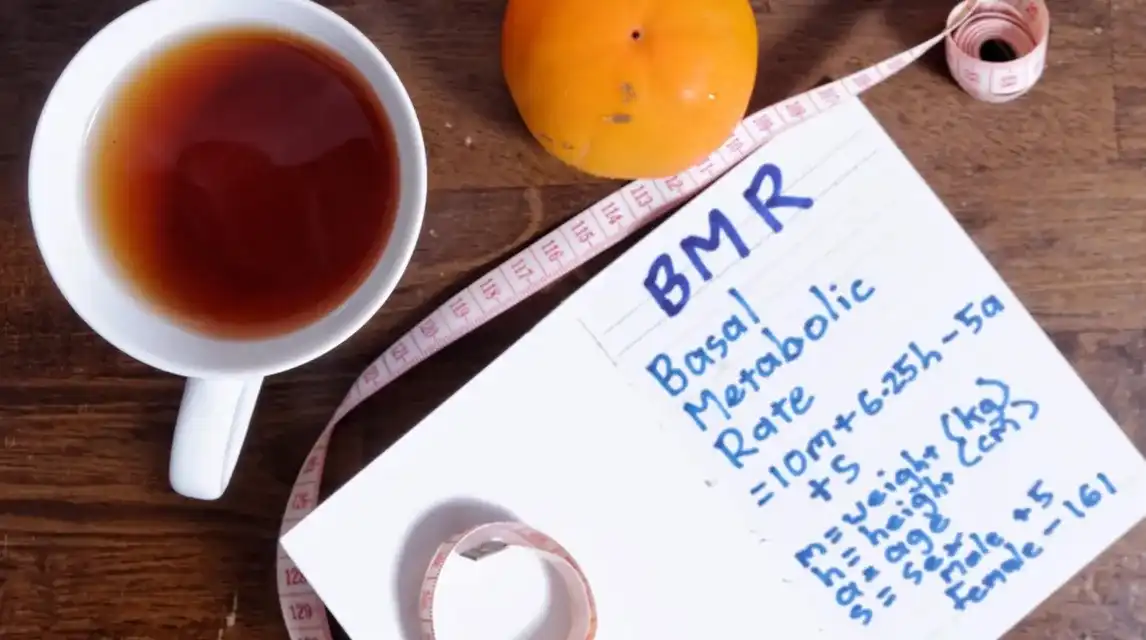 BMR
Basal
Metabolic
Rate
=10m+6.25h-5a
+s
m=weight (kg)
h=height (cm)
a=age
s=sex
male +5
female -161
112
113
114
115
116
117
118
119
120
121
128
129